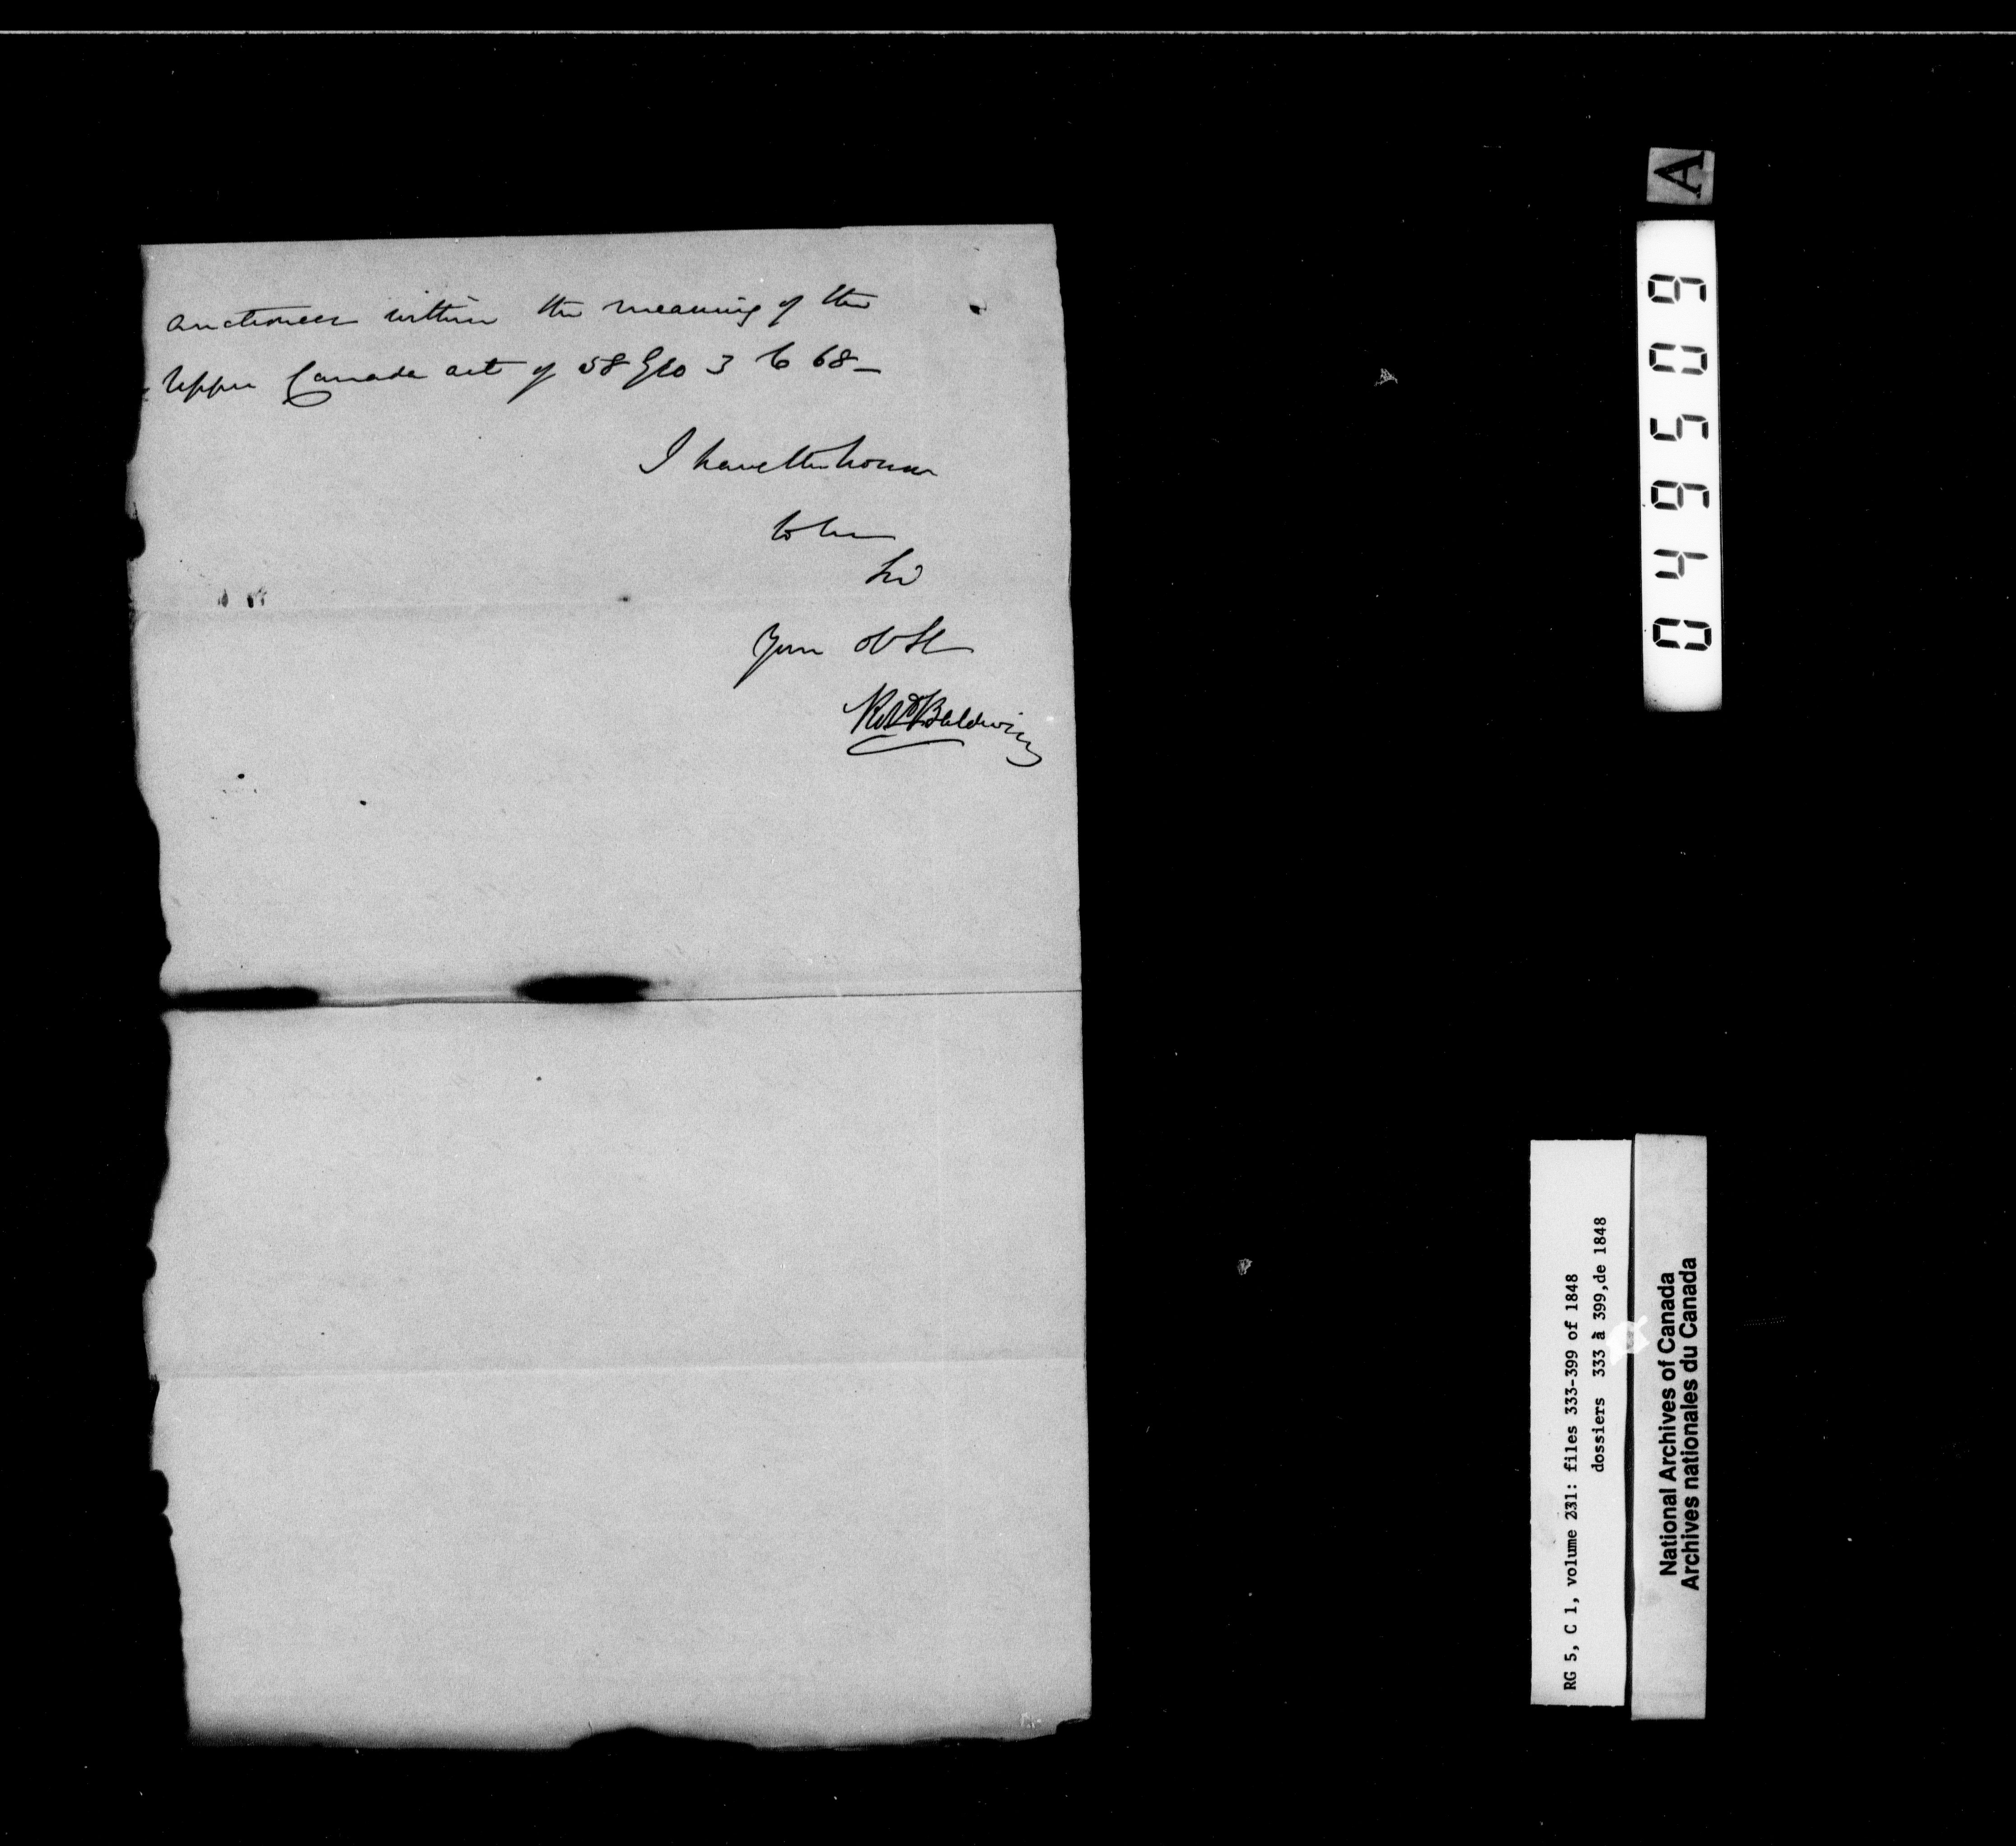 auctioneer within the meaning of the
Upper Canada act of 58 Geo 3 C 68 –
I have the honor
to be
Sir
Your ob St
Robt Baldwin
A
040509
RG 5, C 1, volume 231: files 333-399 of 1848
dossiers 333 à 399,de 1848
National Archives of Canada
Archives nationales du Canada